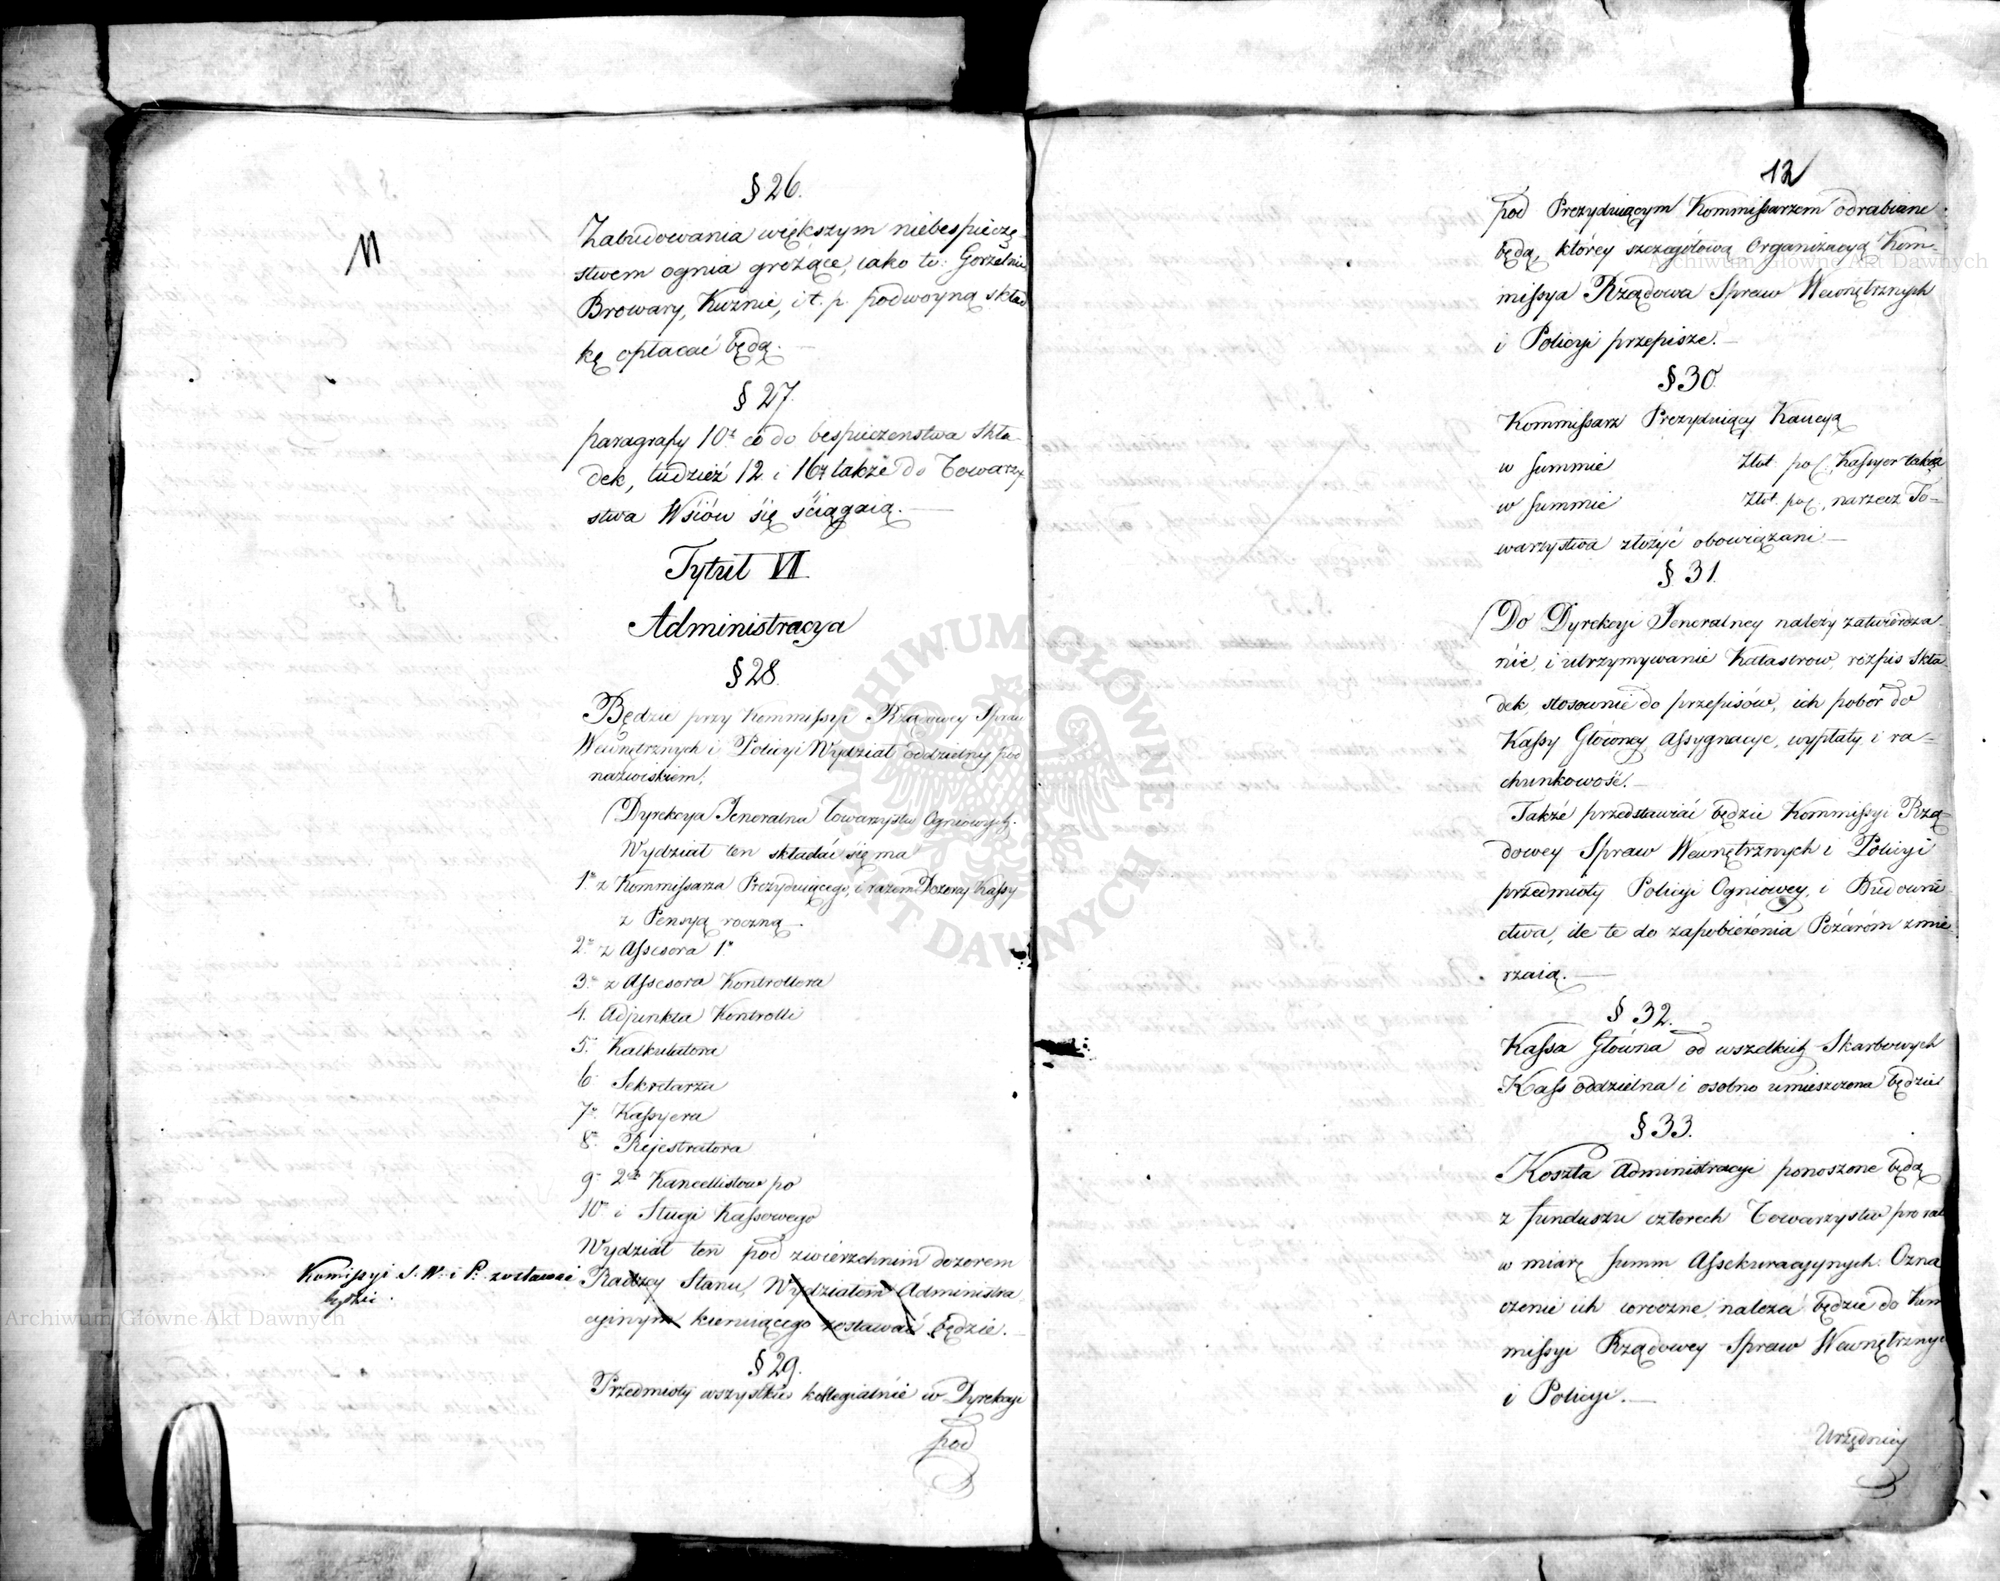 § 26.
Zabudowania większym niebespieczę-
stwem ognia grożące, iako to: Gorzelnie
Browary, Kuźnie, i t. p. podwoyną skład
kę opłacać będą. —
§ 27.
paragrafy 10. co do bespieczenstwa Skła-
dek, tudzież 12. i 16. także do Towarzy
stwa Wsiów się ściągaią. —
Tytuł VI
Administracya
§ 28.
Będzie przy Kommissyi Rządowey Spraw
Wewnętrznych i Policyi Wydział oddzielny pod
nazwiskiem,
(Dyrekcya Jeneralna Towarzystw Ogniowych.
Wydział ten składać się ma
1º z Kommissarza Prezyduiącego, i razem Dozorcy Kassy
z Pensyą roczną —
2º z Assesora 1º
3º z Assesora Kontrollora
4. Adjunkta Kontrolli
5. Kalkulatora
6. Sekretarza
7º. Kassyera
8º. Rejestratora
9. 2ch Kancellistow po
10º i Sługi Kassowego
Wydział ten pod zwierzchnim dozorem
Radzcy Stanu, Wydziałem Administra
cyinym kieruiącego zostawać będzie. —
Komissyi S. W. i P. zostawać
będzie.
§ 29.
Przedmioty wszystkie kollegialnie w Dyrekcyi
pod
12
pod Prezyduiącym Kommissarzem odrabiane
będą, którey szczegółową Organizacyą Kom-
missya Rządowa Spraw Wewnętrznych
i Policyi przepisze. —
§ 30.
Kommissarz Prezyduiący Kaucyą
w Summie Złot. pol., Kassyer taką
w Summie Złot. pol., narzecz To-
warzystwa złożyć obowiązani —
§ 31.
(Do Dyrekcyi Jeneralney należy zatwierdza-
nie, i utrzymywanie Katastrow, rozpis Skła-
dek, stosownie do przepisów, ich pobór do
Kassy Główney, Assygnacye, wypłaty i ra-
chunkowość. —
Także przedstawiać będzie Kommissyi Rzą-
dowey Spraw Wewnętrznych i Policyi
przedmioty Policyi Ogniowey, i Budowni
ctwa, ile te do zapobieżenia Pożarom zmie
rzaią. —
§ 32.
Kassa Główna od wszelkich Skarbowych
Kass oddzielna i osobno umieszczona będzie
§ 33.
Koszta Administracyi ponoszone będą
z funduszu czterech Towarzystw pro rat
w miarę summ Assekuracyjnych. Ozna
czenie ich coroczne należeć będzie do Kom
missyi Rządowey Spraw Wewnętrznych
i Policyi. —
Urzędnicy
Archiwum Główne Akt Dawnych
Archiwum Główne Akt Dawnych
ARCHIWUM GŁÓWNE AKT DAWNYCH